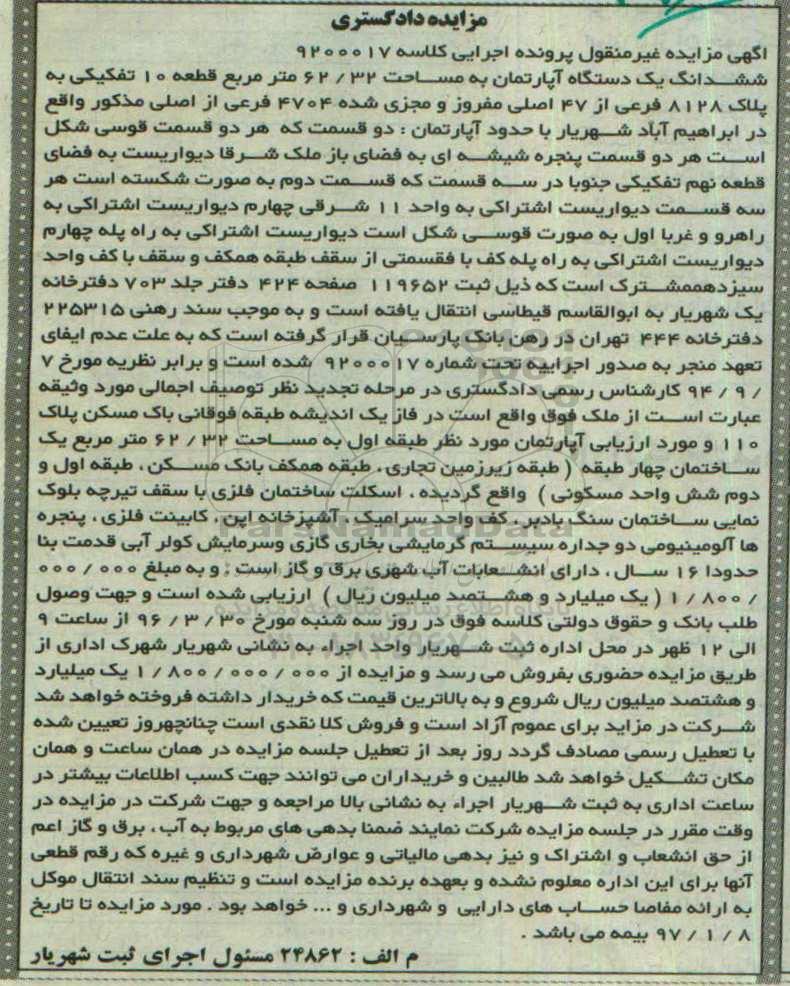 مزایده دادگستری
اگهی مزایده غیرمنقول پرونده اجرایی کلاسه ۹۲۰۰۰۱۷
ششدانگ یک دستگاه آپارتمان به مساحت ۶۲/۳۲ متر مربع قطعه ۱۰ تفکیکی به
پلاک ۸۱۲۸ فرعی از ۴۷ اصلی مفروز و مجزی شده ۴۷۰۴ فرعی از اصلی مذکور واقع
در ابراهیم آباد شهریار با حدود آپارتمان : دو قسمت که هر دو قسمت قوسی شکل
است هر دو قسمت پنجره شیشه ای به فضای باز ملک شرقا دیواریست به فضای
قطعه نهم تفکیکی جنوبا در سه قسمت که قسمت دوم به صورت شکسته است هر
سه قسمت دیواریست اشتراکی به واحد ۱۱ شرقی چهارم دیواریست اشتراکی به
راهرو و غربا اول به صورت قوسی شکل است دیواریست اشتراکی به راه پله چهارم
دیواریست اشتراکی به راه پله کف با فقسمتی از سقف طبقه همکف و سقف با کف واحد
سیزدهممشترک است که ذیل ثبت ۱۱۹۶۵۲ صفحه ۴۲۴ دفتر جلد ۷۰۳ دفترخانه
یک شهریار به ابوالقاسم قیطاسی انتقال یافته است و به موجب سند رهنی ۲۲۵۳۱۵
دفترخانه ۴۴۴ تهران در رهن بانک پارسیان قرار گرفته است که به علت عدم ایفای
تعهد منجر به صدور اجراییه تحت شماره ۹۲۰۰۰۱۷ شده است و برابر نظریه مورخ ۷
/ ۹ / ۹۴ کارشناس رسمی دادگستری در مرحله تجدید نظر توصیف اجمالی مورد وثیقه
عبارت است از ملک فوق واقع است در فاز یک اندیشه طبقه فوقانی باک مسکن پلاک
۱۱۰ و مورد ارزیابی آپارتمان مورد نظر طبقه اول به مساحت ۶۲/۳۲ متر مربع یک
ساختمان چهار طبقه ( طبقه زیرزمین تجاری ، طبقه همکف بانک مسکن ، طبقه اول و
دوم شش واحد مسکونی ) واقع گردیده ، اسکلت ساختمان فلزی با سقف تیرچه بلوک
نمایی ساختمان سنگ بادبر ، کف واحد سرامیک ، آشپزخانه اپن ، کابینت فلزی ، پنجره
ها آلومینیومی دو جداره سیستم گرمایشی بخاری گازی وسرمایش کولر آبی قدمت بنا
حدودا ۱۶ سال ، دارای انشعابات آب شهری برق و گاز است ; و به مبلغ ۰۰۰ / ۰۰۰
/ ۸۰۰ / ۱ ( یک میلیارد و هشتصد میلیون ریال ) ارزیابی شده است و جهت وصول
طلب بانک و حقوق دولتی کلاسه فوق در روز سه شنبه مورخ ۳۰ / ۳ / ۹۶ از ساعت ۹
الی ۱۲ ظهر در محل اداره ثبت شهریار واحد اجراء به نشانی شهریار شهرک اداری از
طریق مزایده حضوری بفروش می رسد و مزایده از ۰۰۰ / ۰۰۰ / ۸۰۰ / ۱ یک میلیارد
و هشتصد میلیون ریال شروع و به بالاترین قیمت که خریدار داشته فروخته خواهد شد
شرکت در مزاید برای عموم آزاد است و فروش کلا نقدی است چنانچهروز تعیین شده
با تعطیل رسمی مصادف گردد روز بعد از تعطیل جلسه مزایده در همان ساعت و همان
مکان تشکیل خواهد شد طالبین و خریداران می توانند جهت کسب اطلاعات بیشتر در
ساعت اداری به ثبت شهریار اجراء به نشانی بالا مراجعه و جهت شرکت در مزایده در
وقت مقرر در جلسه مزایده شرکت نمایند ضمنا بدهی های مربوط به آب ، برق و گاز اعم
از حق انشعاب و اشتراک و نیز بدهی مالیاتی و عوارض شهرداری و غیره که رقم قطعی
آنها برای این اداره معلوم نشده و بعهده برنده مزایده است و تنظیم سند انتقال موکل
به ارائه مفاصا حساب های دارایی و شهرداری و ... خواهد بود . مورد مزایده تا تاریخ
۸ / ۱ / ۹۷ بیمه می باشد .
م الف : ۲۴۸۶۲ مسئول اجرای ثبت شهریار